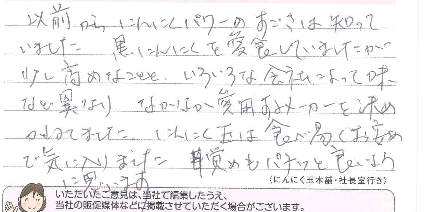 以前から、にんにくパワーのすごさは知って
いました 黒にんにくを愛食していましたが
少し高めなことと、いろいろな会社によって味
など異なり なかなか愛用するメーカーを決め
かねてました。にんにく玉は食べ易くお安め
で気に入りました 目覚めもパチッと良いよう
に思います
(にんにく玉本舗・社長室行き)
いただいたご意見は、当社で編集したうえ、
当社の販促媒体などに掲載させていただく場合がございます。